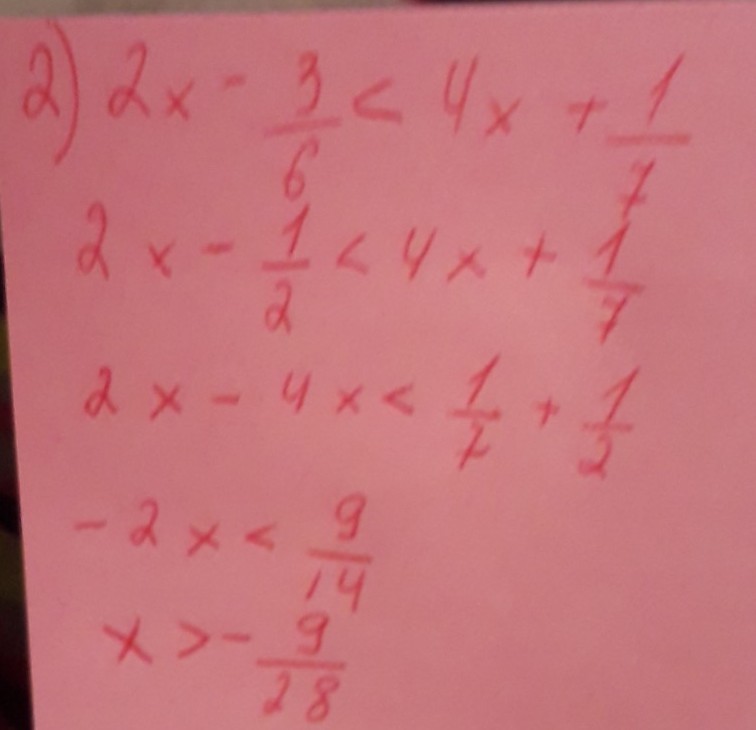 2) 2x - 3/6 < 4x + 1/7
2x - 1/2 < 4x + 1/7
2x - 4x < 1/7 + 1/2
-2x < 9/14
x > - 9/28